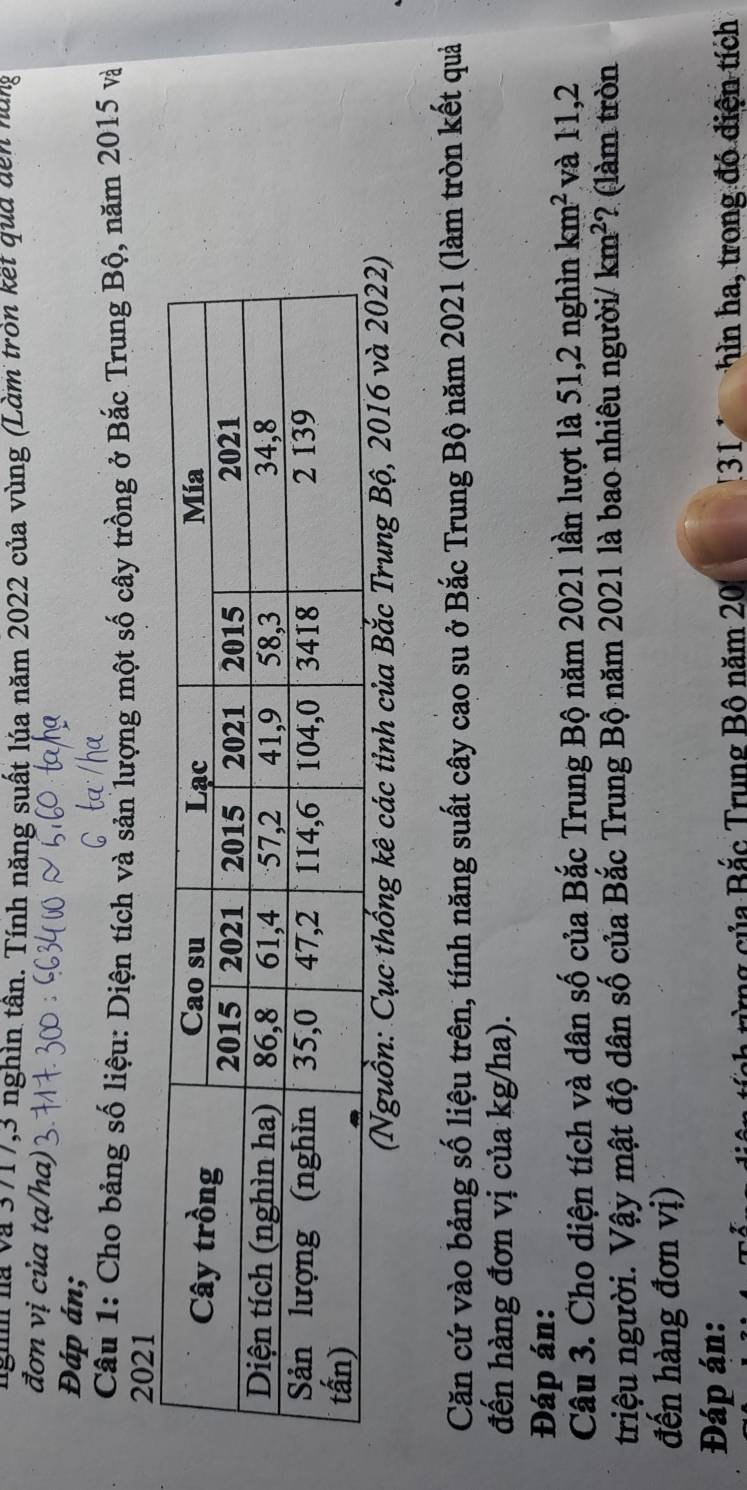 đơn vị của tạ/ha) 3.717.300 : 663400 ≈ 5,60 tạ/hạ
Đáp án; 6 tạ/ha
Câu 1: Cho bảng số liệu: Diện tích và sản lượng một số cây trồng ở Bắc Trung Bộ, năm 2015 và
2021
Cây trồng Cao su Lạc Mía
2015 2021 2015 2021 2015 2021
Diện tích (nghìn ha) 86,8 61,4 57,2 41,9 58,3 34,8
Sản lượng (nghìn 35,0 47,2 114,6 104,0 3418 2 139
tấn)
(Nguồn: Cục thống kê các tỉnh của Bắc Trung Bộ, 2016 và 2022)
Căn cứ vào bảng số liệu trên, tính năng suất cây cao su ở Bắc Trung Bộ năm 2021 (làm tròn kết quả
đến hàng đơn vị của kg/ha).
Đáp án:
Câu 3. Cho diện tích và dân số của Bắc Trung Bộ năm 2021 lần lượt là 51,2 nghìn km² và 11,2
triệu người. Vậy mật độ dân số của Bắc Trung Bộ năm 2021 là bao nhiêu người/ km²? (làm tròn
đến hàng đơn vị)
Đáp án:
của Bắc Trung Bộ năm ha, trong đó diện tích